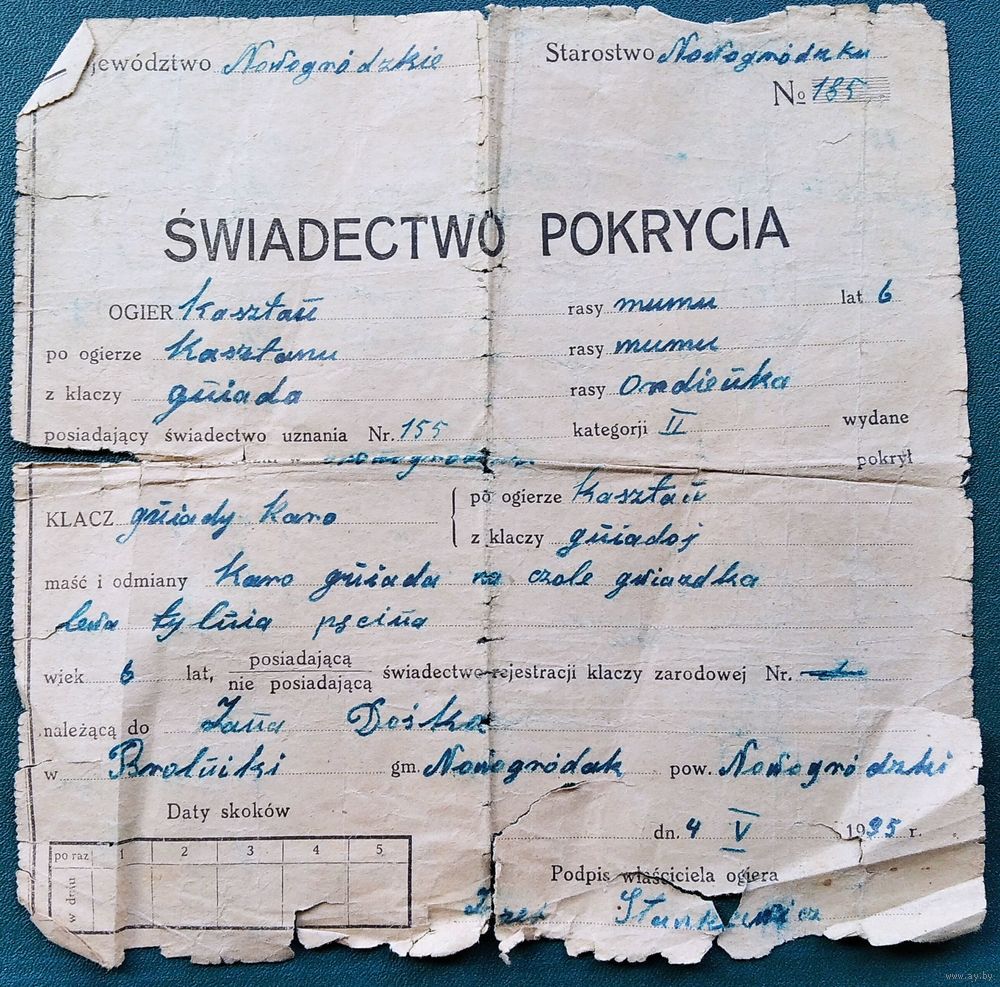 jewództwo Nowogródzkie Starostwo Nowogródzku
No 185
ŚWIADECTWO POKRYCIA
OGIER Kasztan rasy mumu lat 6
po ogierze Kasztanu rasy mumu
z klaczy gniada rasy
posiadający świadectwo uznania Nr. 155 kategorji II wydane
pokrył
KLACZ gniady Karo po ogierze Kasztan
z klaczy gniadoj
maść i odmiany Karo gniada na czole gwiazdka
lewa tylnia pęcina
wiek 6 lat, posiadająca
nie posiadającą świadectwo rejestracji klaczy zarodowej Nr.
należącą do Jana Dośka
w Brolniki gm. Nowogródek pow. Nowogródzki
Daty skoków
dn. 4 V 1935 r.
po raz 1 2 3 4 5
w dniu
Podpis właściciela ogiera
Stankiewicz
www.ay.by